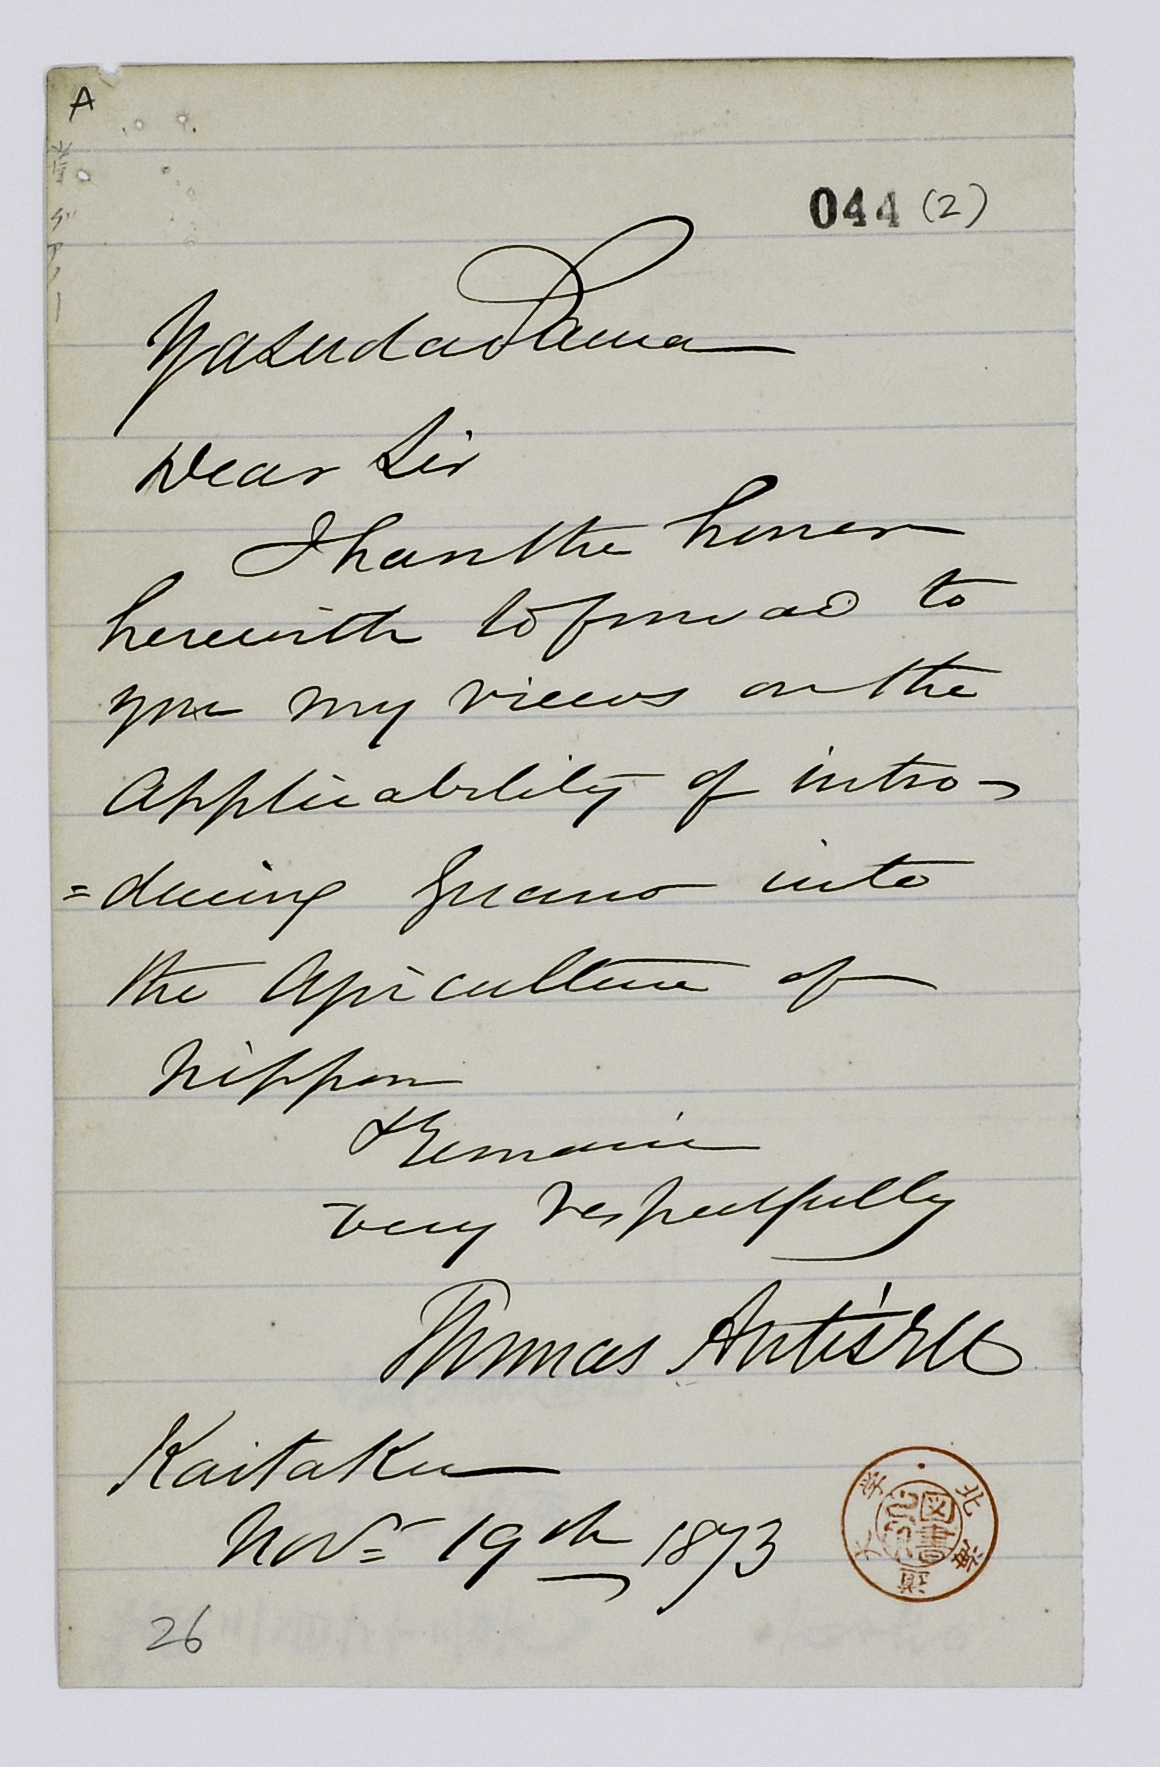 A
044 (2)
Yasuda Sama
Dear Sir
I have the honor
herewith to forward to
you my views on the
Applicability of intro-
=ducing Guano into
the Agriculture of
Nippon
I Remain
very respectfully
Thomas Antisell
Kaitaku
Nov= 19th 1873
北海道大学
図書
26